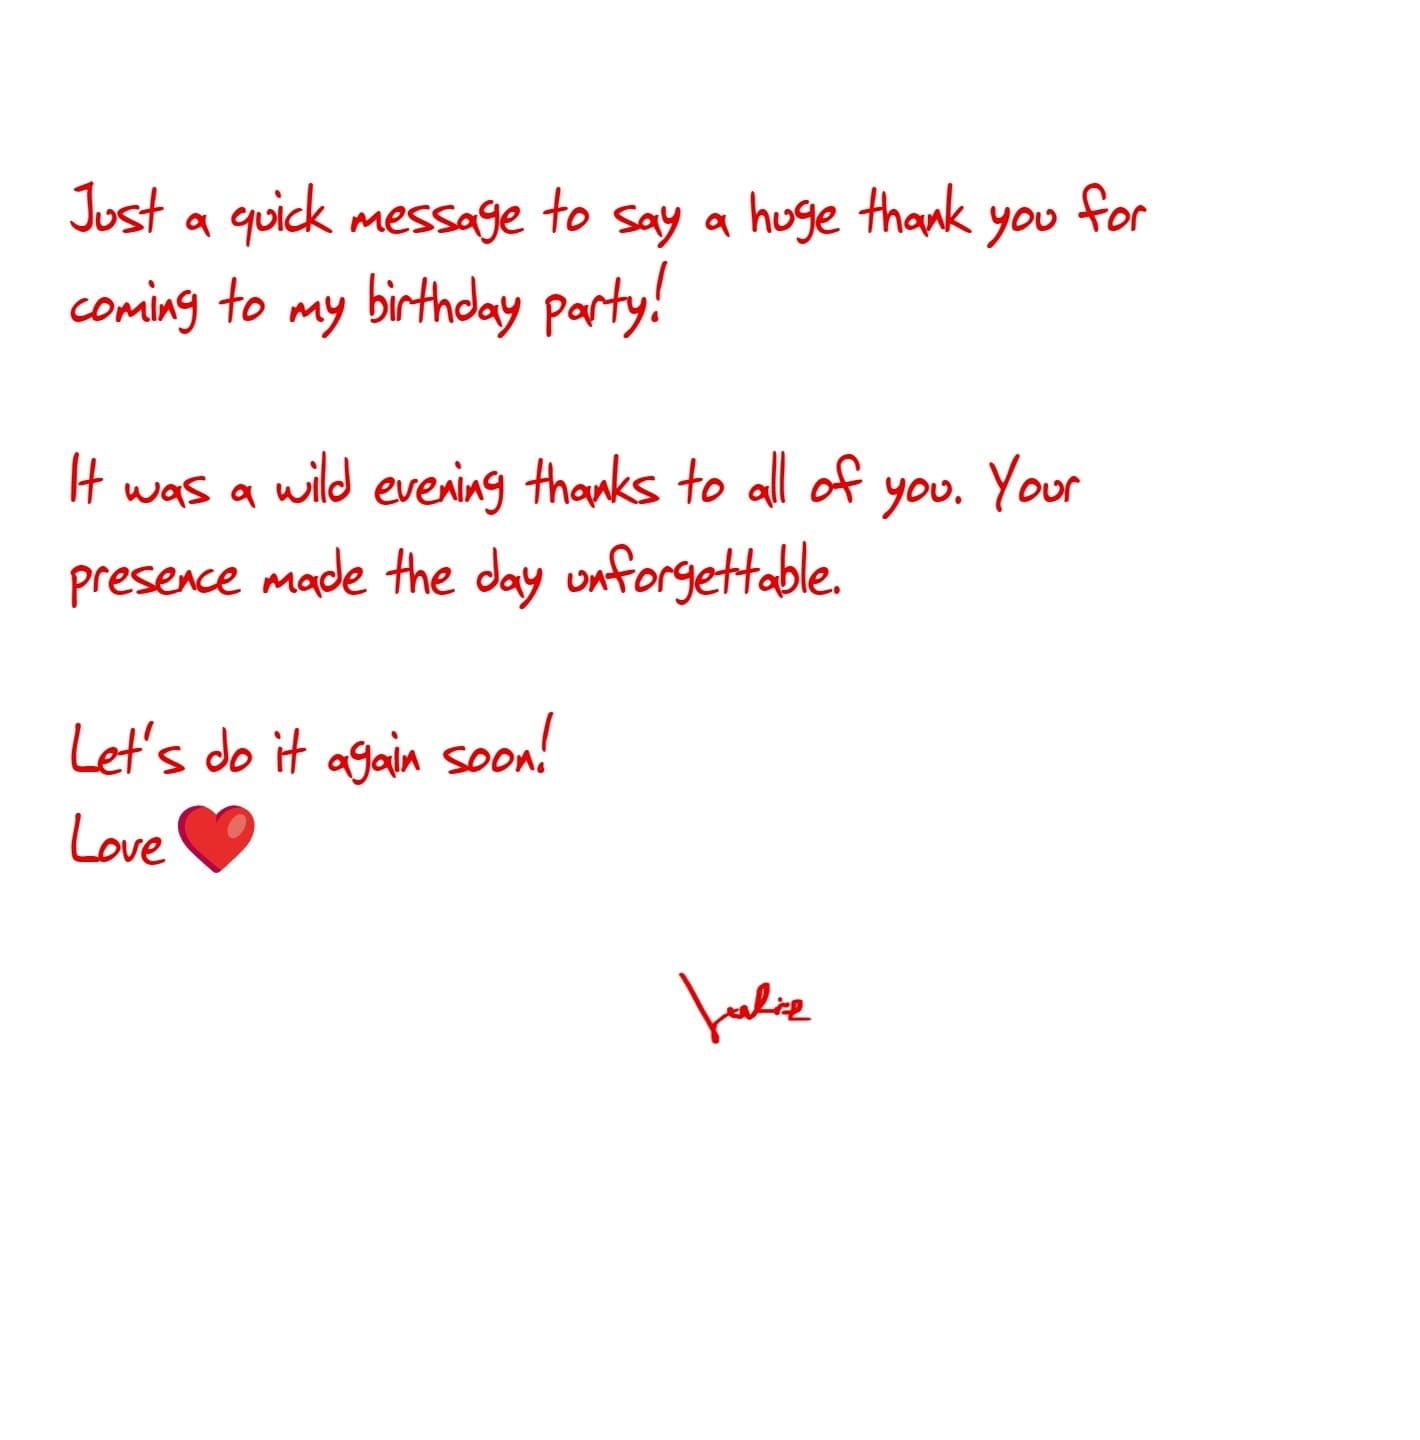 Just a quick message to say a huge thank you for
coming to my birthday party!
It was a wild evening thanks to all of you. Your
presence made the day unforgettable.
Let's do it again soon!
Love ❤️